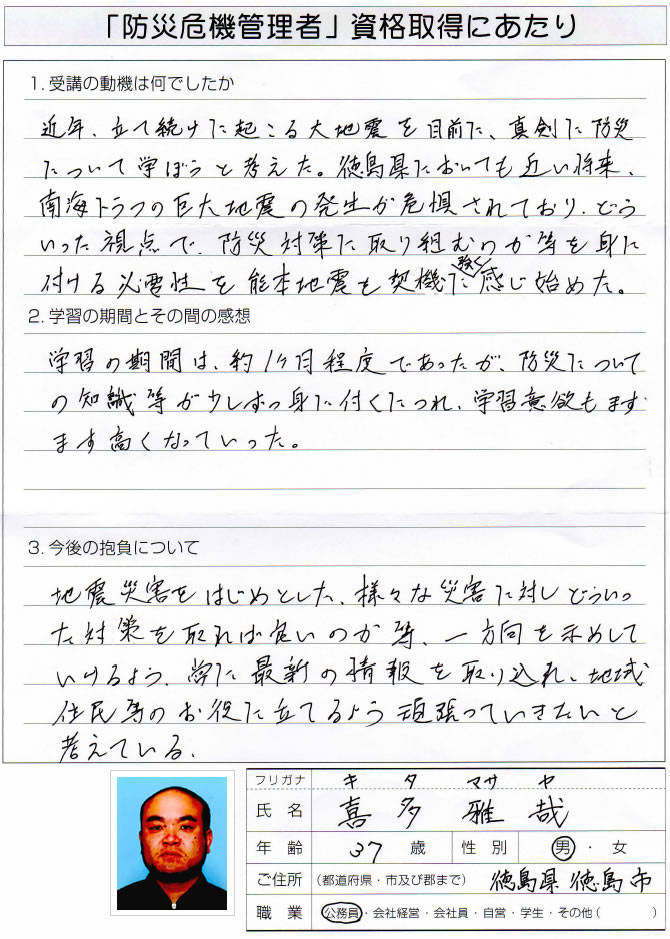 「防災危機管理者」資格取得にあたり
1. 受講の動機は何でしたか
近年、立て続けに起こる大地震を目前に、真剣に防災
について学ぼうと考えた。徳島県においても近い将来、
南海トラフの巨大地震の発生が危惧されており、どう
いった視点で、防災対策に取り組むのか等を身に
付ける必要性を熊本地震も契機に強く感じ始めた。
2. 学習の期間とその間の感想
学習の期間は、約1ヶ月程度であったが、防災について
の知識等が少しずつ身に付くにつれ、学習意欲もます
ます高くなっていった。
3. 今後の抱負について
地震災害をはじめとした、様々な災害に対しどういっ
た対策を取れば良いのか等、一方向を示めして
いけるよう、常に最新の情報を取り込れ、地域
住民等のお役に立てるよう頑張っていきたいと
考えている。
フリガナ キタ マサヤ
氏名 喜多 雅哉
年齢 37 歳 性別 男・女
ご住所 (都道府県・市及び郡まで) 徳島県徳島市
職業 公務員・会社経営・会社員・自営・学生・その他( )